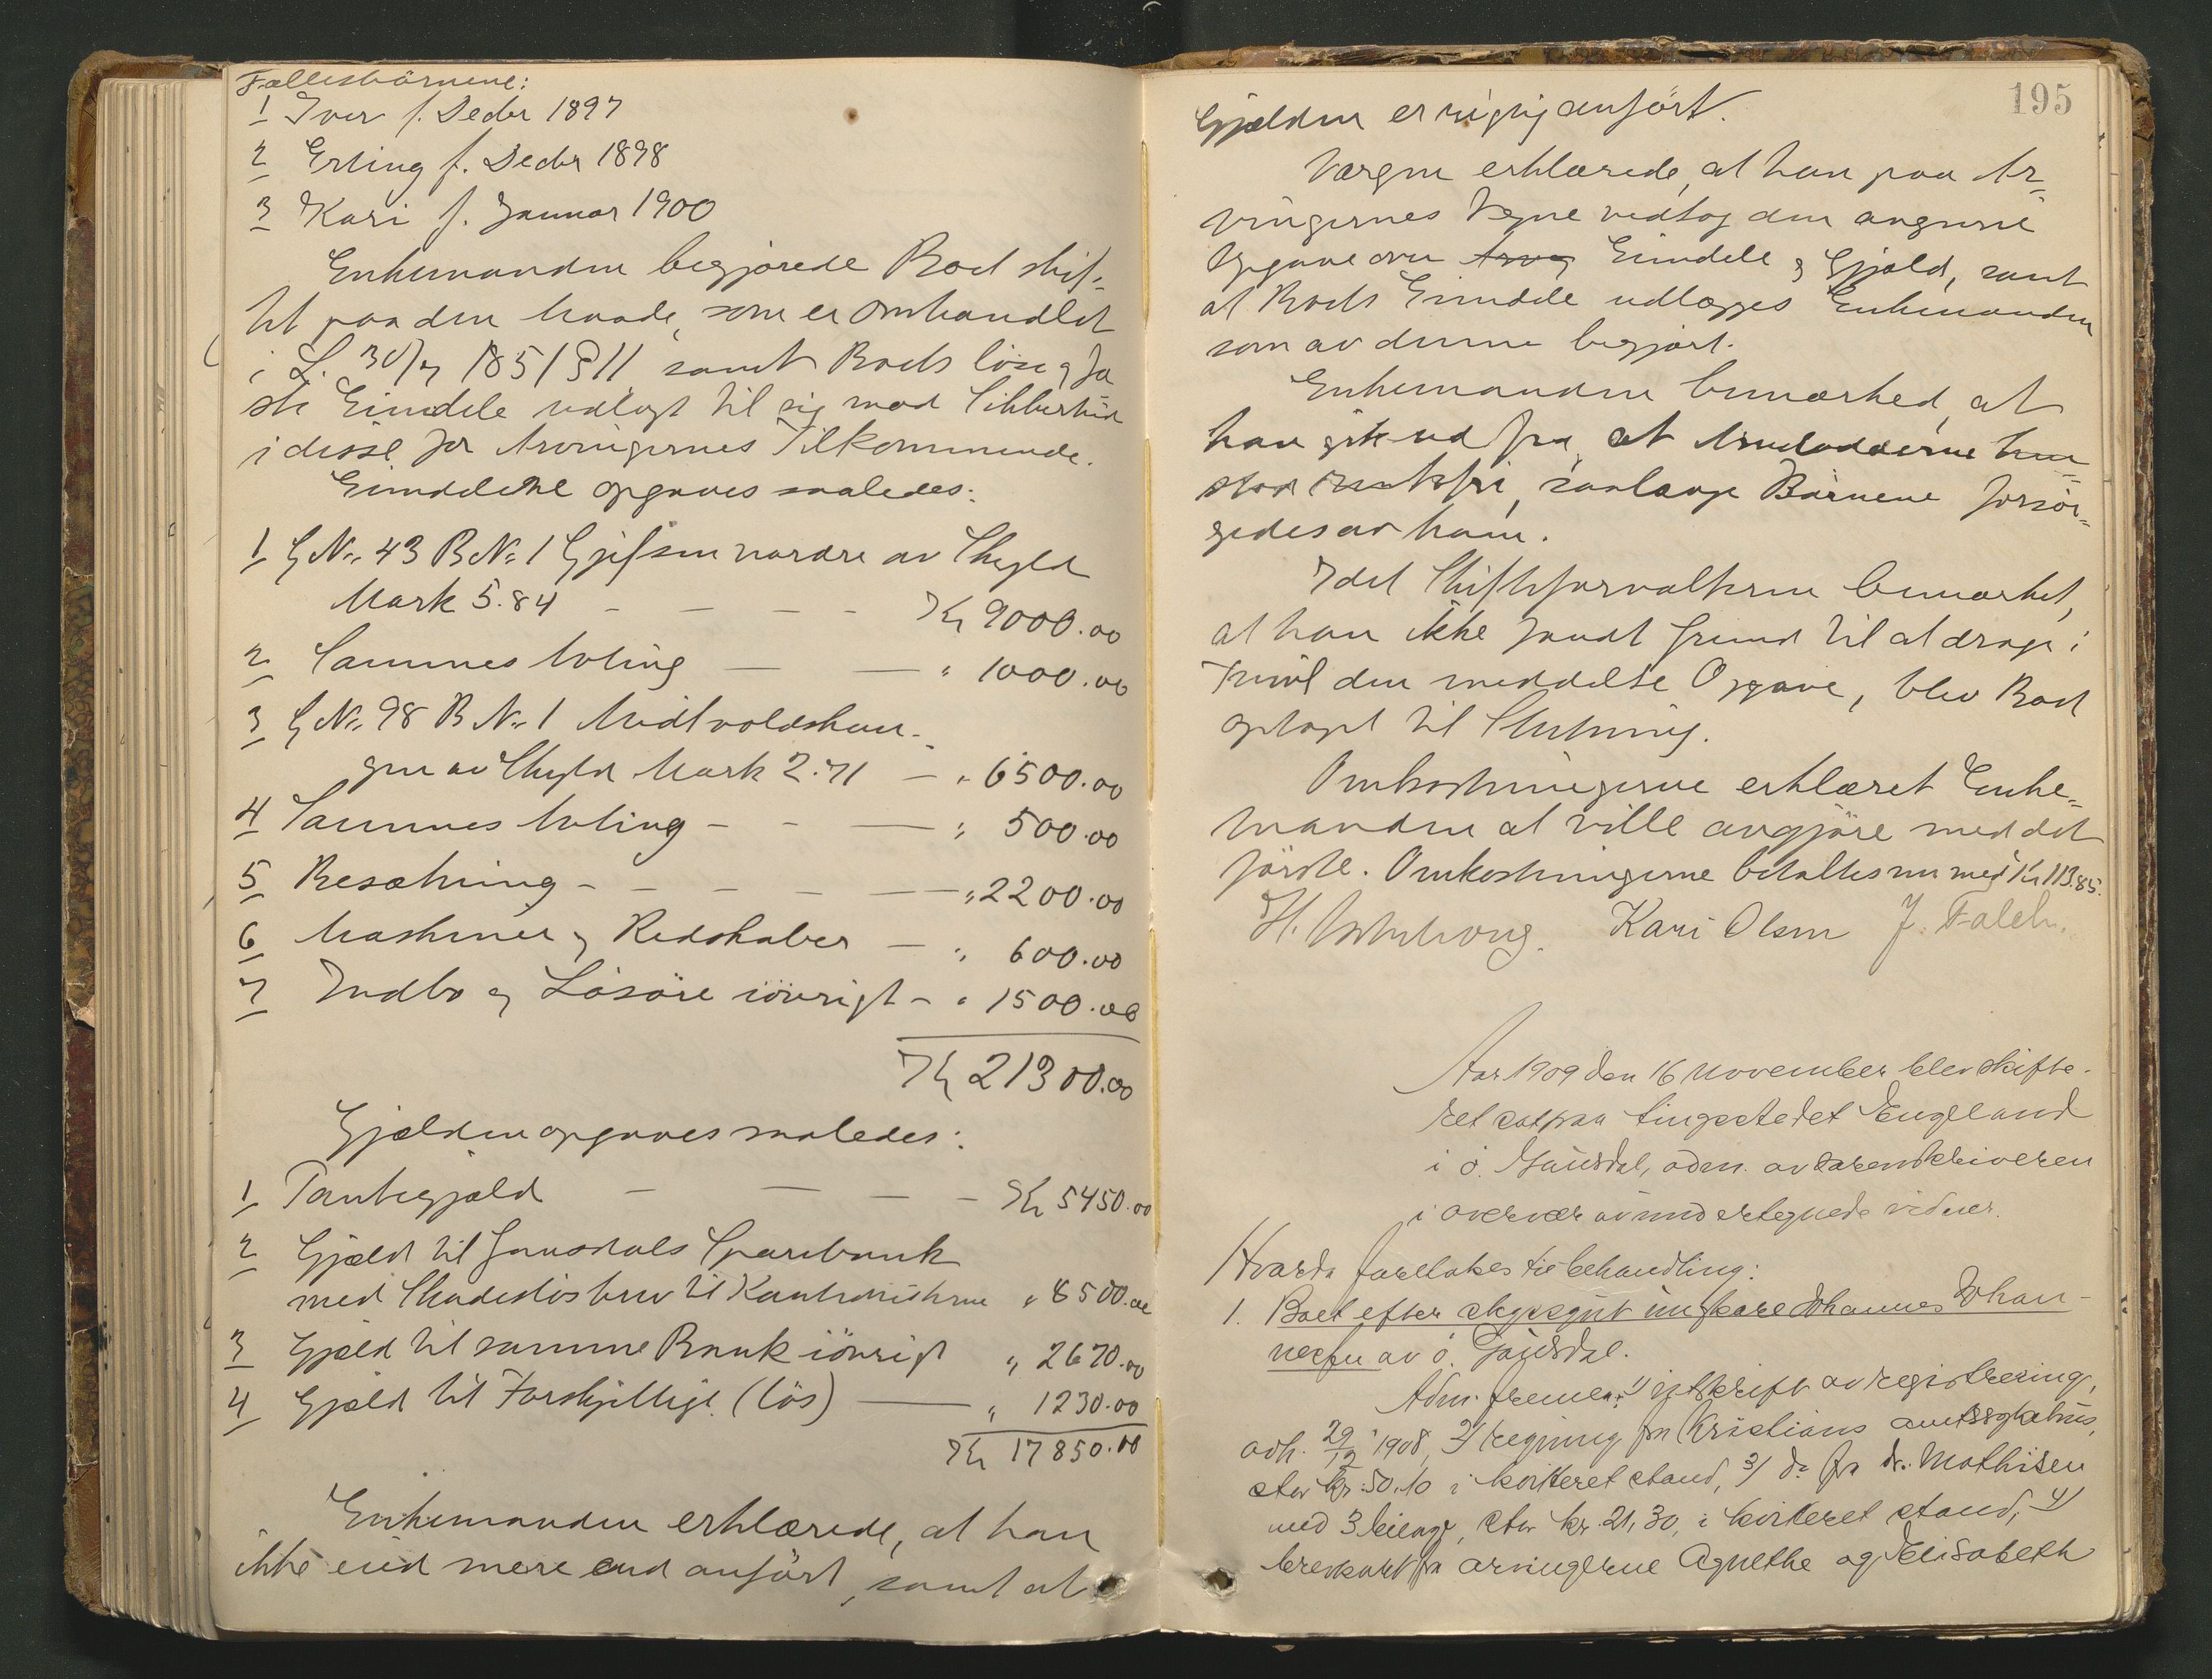 Fællesbörnene:
1 Iver f. Decbr 1897
2 Erling f. Decbr 1898
3 Kari f. Januar 1900
Enkemanden begjærede Boet skif-
tet paa den Maade, som er omhandlet
i L. 30/7 1851 § 11 samt Boets löse og fa
ste Eiendele udlagt til sig mod Sikkerhed
i disse for Arvingernes Tilkommende.
Eiendelene opgaves saaledes:
1 G No. 43 B No. 1 nordre av Skyld
Mark 5.84 - - - - Kr 9000.00
2 Sammes Avling — — " 1000.00
3 G No. 98 B No. 1 Midtvoldshau-
gen av Skyld Mark 2.71 — " 6500.00
4 Sammes Avling - - — " 500.00
5 Besætning - - - - — " 2200.00
6 Maskiner og Redskaber — " 600.00
7 Indbo og Lösöre iövrigt - " 1500.00
Kr 21300.00
Gjælden opgaves saaledes:
1 Pantegjæld — — — - Kr 5450.00
2 Gjæld til Gausdals Sparebank
med Skadeslösbrev til Kautionisterne " 8500.00
3 Gjæld til samme Bank iövrigt " 2670.00
4 Gjæld til Forskjellige (lös) — " 1230.00
Kr 17850.00
Enkemanden erklærede, at han
ikke eied mere end anfört, samt at
195
Gjælden er rigtig anfört.
Værgen erklærede, at han paa Ar-
vingernes Vegne vedtog den angivne
Opgave over Eiendele og Gjæld, samt
at Boets Eiendele udlægges Enkemanden
som av denne begjært.
Enkemanden bemærked, at
han gik ud fra, at Arvelodderne hen-
stod rentefri, saalænge Börnene forsör-
gedes av ham.
Idet Skifteforvalteren bemærket,
at han ikke fandt Grund til at drage i
Tvivl den meddelte Opgave, blev Boet
optaget til Slutning.
Omkostningerne erklæret Enke-
manden at ville avgjöre med det
förste. Omkostningerne betaltes nu med Kr 113.85.
Kari Olsen J. Falch.
Aar 1909 den 16 November blev skifte-
ret sat paa tingstedet Engeland
i ö. Gausdal, adm. av sorenskriveren
i overvær av undertegnede vidner.
Hvorda foretokes til behandling:
1. Boet efter ungkare Johannes Johan-
nessen av ö. Gausdal.
Adm. fremla: 1/ utskrift av registrering,
avh. 29/12 1908, 2/ regning fra Kristians amtssykehus,
stor kr. 50.10 i kvitteret stand, 3/ do fra dr. Mathisen
med 3 bilage, stor kr. 21,30, i kvitteret stand, 4/
brevkort fra arvingerne Agnethe og Elisabeth